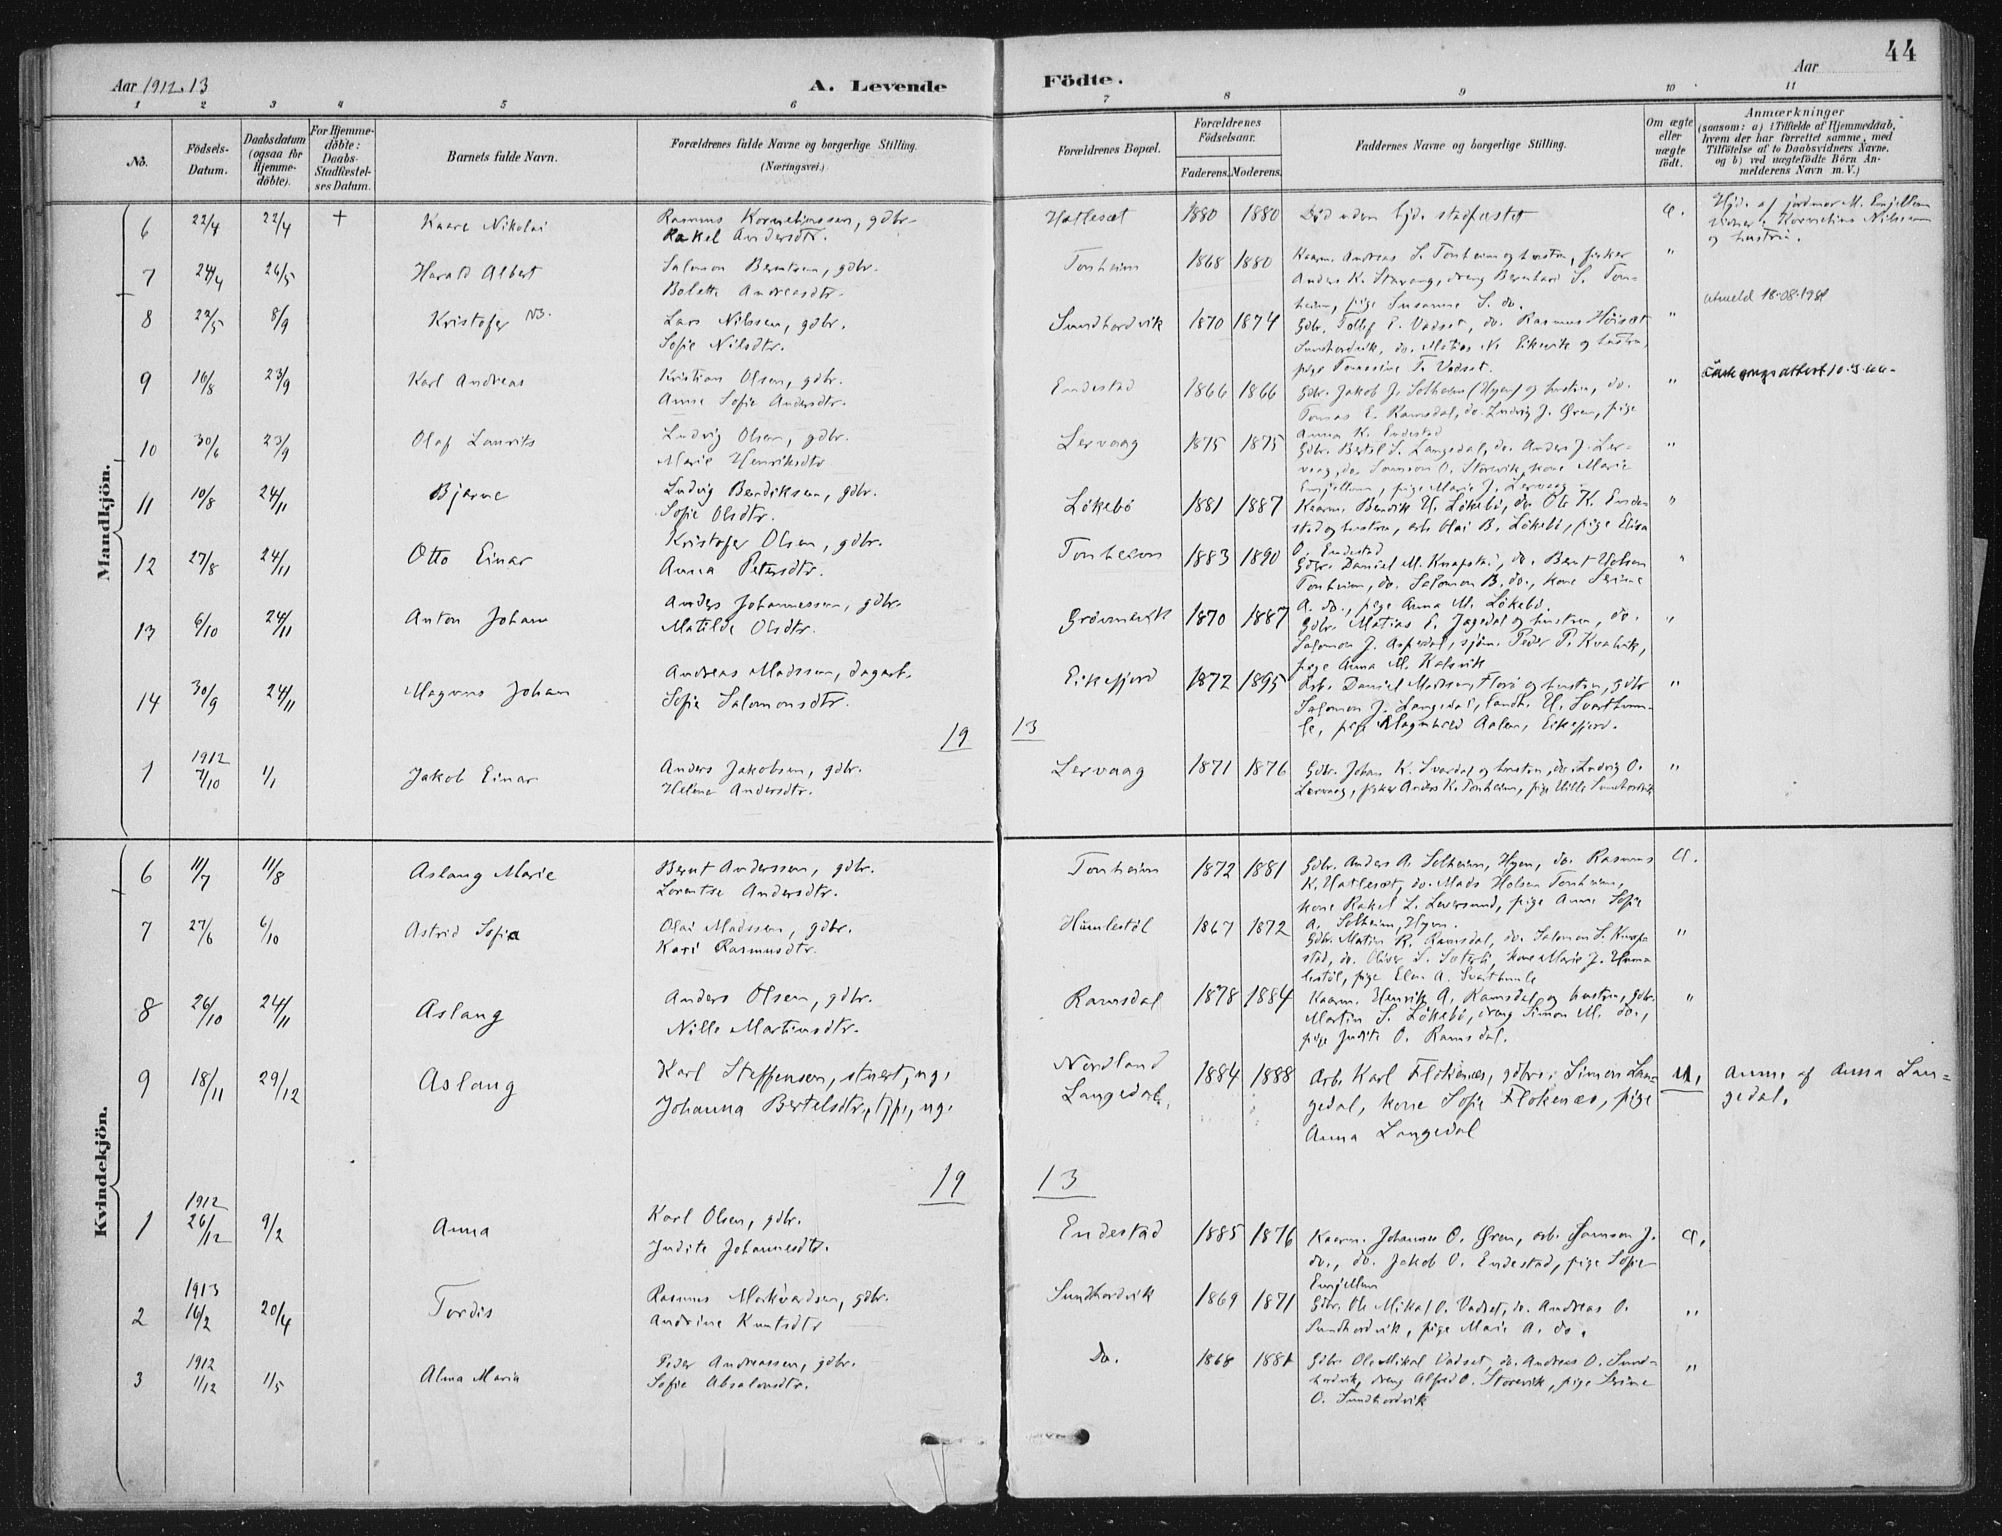 44
Aar 1912. 13
A. Levende Födte.
Aar
1 2 3 4 5 6 7 8 9 10 11
No.
Födsels-Datum.
Daabsdatum (ogsaa for Hjemme-döbte).
For Hjemme-döbte: Daabs-Stadfæstel-ses Datum.
Barnets fulde Navn.
Forældrenes fulde Navne og borgerlige Stilling. (Næringsvei.)
Forældrenes Bopæl.
Forældrenes Födselsaar.
Faderens. Moderens.
Faddernes Navne og borgerlige Stilling.
Om ægte eller uægte födt.
Anmærkninger
(saasom: a) i Tilfælde af Hjemmedaab,
hvem der har forrettet samme, med
Tilföielse af to Daabsvidners Navne.
og b) ved uægtefödte Börn An-
melderens Navn m. V.)
Mandkjön.
6 22/4 22/4 + Kaare Nikolai Rasmus Korneliussen, gdbr. Hatleset 1880 1880 Död uden hjd. stadfæstet a. Hjd. af jordmor M.
Rakel Andersdtr. Kornelius Nilssen
og hustru.
7 24/4 26/5 Harald Albert Salomon Berntsen, gdbr. Tonheim 1868 1880 Kaarm. Andreas S. Tonheim og hustru, fisker "
Bolette Andreasdtr. Anders K. Stavang, dreng Bernhard S. Ton-
heim, pige Susanne S. do.
8 22/5 8/9 Kristofer NB. Lars Nilssen, gdbr. Sundhordvik 1870 1874 Gdbr. Tollef E. Vadset, do. Rasmus Höiset "
Sofie Nilsdtr. Sundhordvik, do. Matias N. Eikevik og hustru,
pige Tomasine T. Vadset.
9 16/8 23/9 Karl Andreas Kristian Olsen, gdbr. Endestad 1866 1866 Gdbr. Jakob J. Solheim (Hyen) og hustru, do. "
Anne Sofie Andersdtr. Tomas E. Ramsdal, do. Ludvig J. Øren, pige
Anna K. Endestad
10 30/6 23/9 Olaf Laurits Ludvig Olsen, gdbr. Lervaag 1875 1875 Gdbr. Bertel S. Langedal, do. Anders J. Ler- "
Marie Henriksdtr. vaag, do. Samson O. Storevik, kone Marie
pige Marie J. Lervaag
11 10/8 24/11 Bjarne Ludvig Bendiksen, gdbr. Lökebö 1881 1887 Kaarm. Bendik U. Lökebö, do. Ole K. Ende- "
Sofie Olsdtr. stad og hustru, arb. Olai B. Lökebö, pige Elisa
O. Endestad
12 27/8 24/11 Otto Einar Kristofer Olsen, gdbr. Tonheim 1883 1890 Gdbr. Daniel M. Knapstad, do. Bernt Holsen "
Anna Petersdtr. Tonheim, do. Salomon B. do., kone Serine
A. do., pige Anna M. Lökebö.
13 6/10 24/11 Anton Johan Anders Johannessen, gdbr. 1870 1887 Gdbr. Matias E. Jagedal og hustru, do. "
Matilde Olsdtr. Salomon J. Aspedal, sjöm. Peder P. Kvalvik,
pige Anna M. Kalsvik
14 30/9 24/11 Magnus Johan Andreas Madssen, dagarb. Eikefjord 1872 1895 Arb. Daniel Madssen Florö og hustru, gdbr "
Sofie Salomonsdtr. Salomon J. Langedal, U. Svarthum-
le, pige Magnhild Aalen, Eikefjord.
19 13
1 1912 7/10 1/1 Jakob Einar Anders Jakobsen, gdbr. Lervaag 1871 1876 Gdbr. Johan K. Svardal og hustru, do. Ludvig O. "
Helene Andersdtr. Lervaag, fisker Anders K. Tonheim, pige Nille Sundhordvik
Kvindekjön.
6 11/7 11/8 Aslaug Marie Bernt Anderssen, gdbr. Tonheim 1872 1881 Gdbr. Anders A. Solheim, Hyen, do. Rasmus a.
Lorentse Andersdtr. K. Hatleset, do. Mads Holsen Tonheim,
kone Rakel L. Leversund, pige Anne Sofie
A. Solheim, Hyen.
7 27/6 6/10 Astrid Sofie Olai Madssen, gdbr. Humlestöl 1867 1872 Gdbr. Matias R. Ramsdal, do. Salomon S. Knap- "
Kari Rasmusdtr. stad, do. Oliver S. Sæterli, kone Marie J. Hum-
lestöl, pige Elen A. Svarthumle
8 26/10 24/11 Aslaug Anders Olsen, gdbr. Ramsdal 1878 1884 Kaarm. Henrik A. Ramsdal og hustru, gdbr. "
Nille Martinsdtr. Martin S. Lökebö, dreng Simon M. do.,
pige Judite O. Ramsdal.
9 18/11 29/12 Aslaug Karl Steffensen, stuert, ug. Nordland 1884 1888 Arb. Karl Flokenæs, gdbr. Simon Lan- u. Anm. af Anna Lan-
Johanna Bertelsdtr., tjp., ug. Langedal. gedal, kone Sofie Flokenæs, pige gedal.
Anna Langedal
19 13
1 1912 26/12 9/2 Anna Karl Olsen, gdbr. Endestad 1885 1876 Kaarm. Johannes O. Øren, arb. Samson J. a.
Judite Johannesdtr. do., do. Jakob O. Endestad, pige Sofie
2 1913 16/2 20/4 Tordis Rasmus Markvardsen, gdbr. Sundhordvik 1869 1871 Gdbr. Ole Mikal O. Vadset, do. Andreas O. "
Andrine Knutsdtr Sundhordvik, pige Marie A. do.
3 1912 1/12 1/5 Alma Maria Peder Andreassen, gdbr. Do. 1868 1881 Gdbr. Ole Mikal Vadset, do. Andreas O. Sund- "
Sofie Absalonsdtr. hordvik, dreng Alfred O. Storevik, pige Serine
O. Sundhordvik